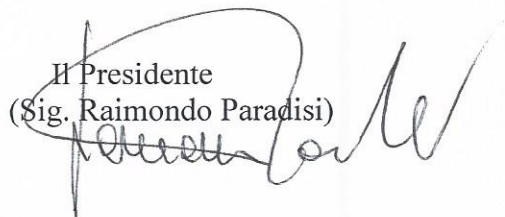 Il Presidente
(Sig. Raimondo Paradisi)